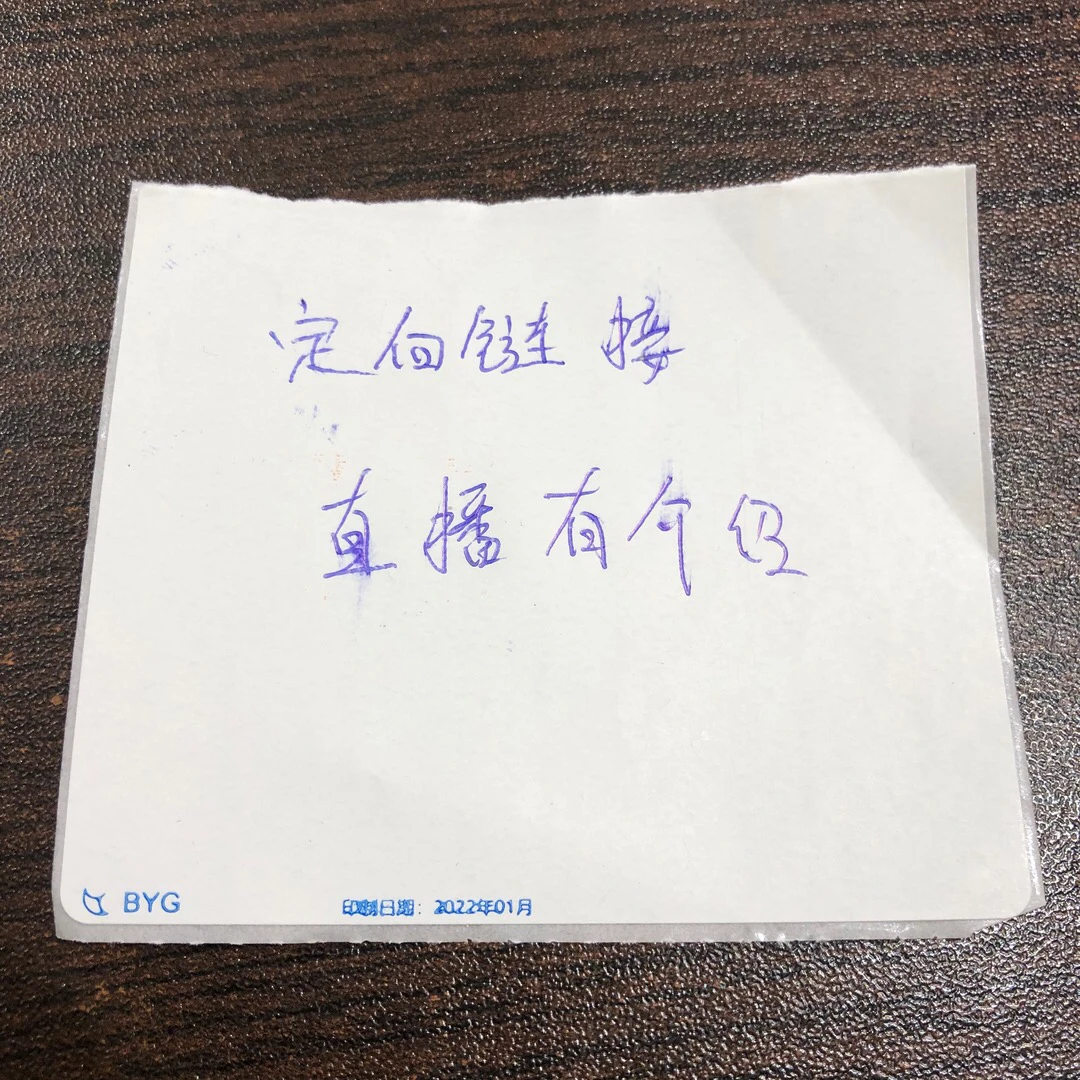 定向链接
直播有介绍
BYG
印制日期: 2022年01月